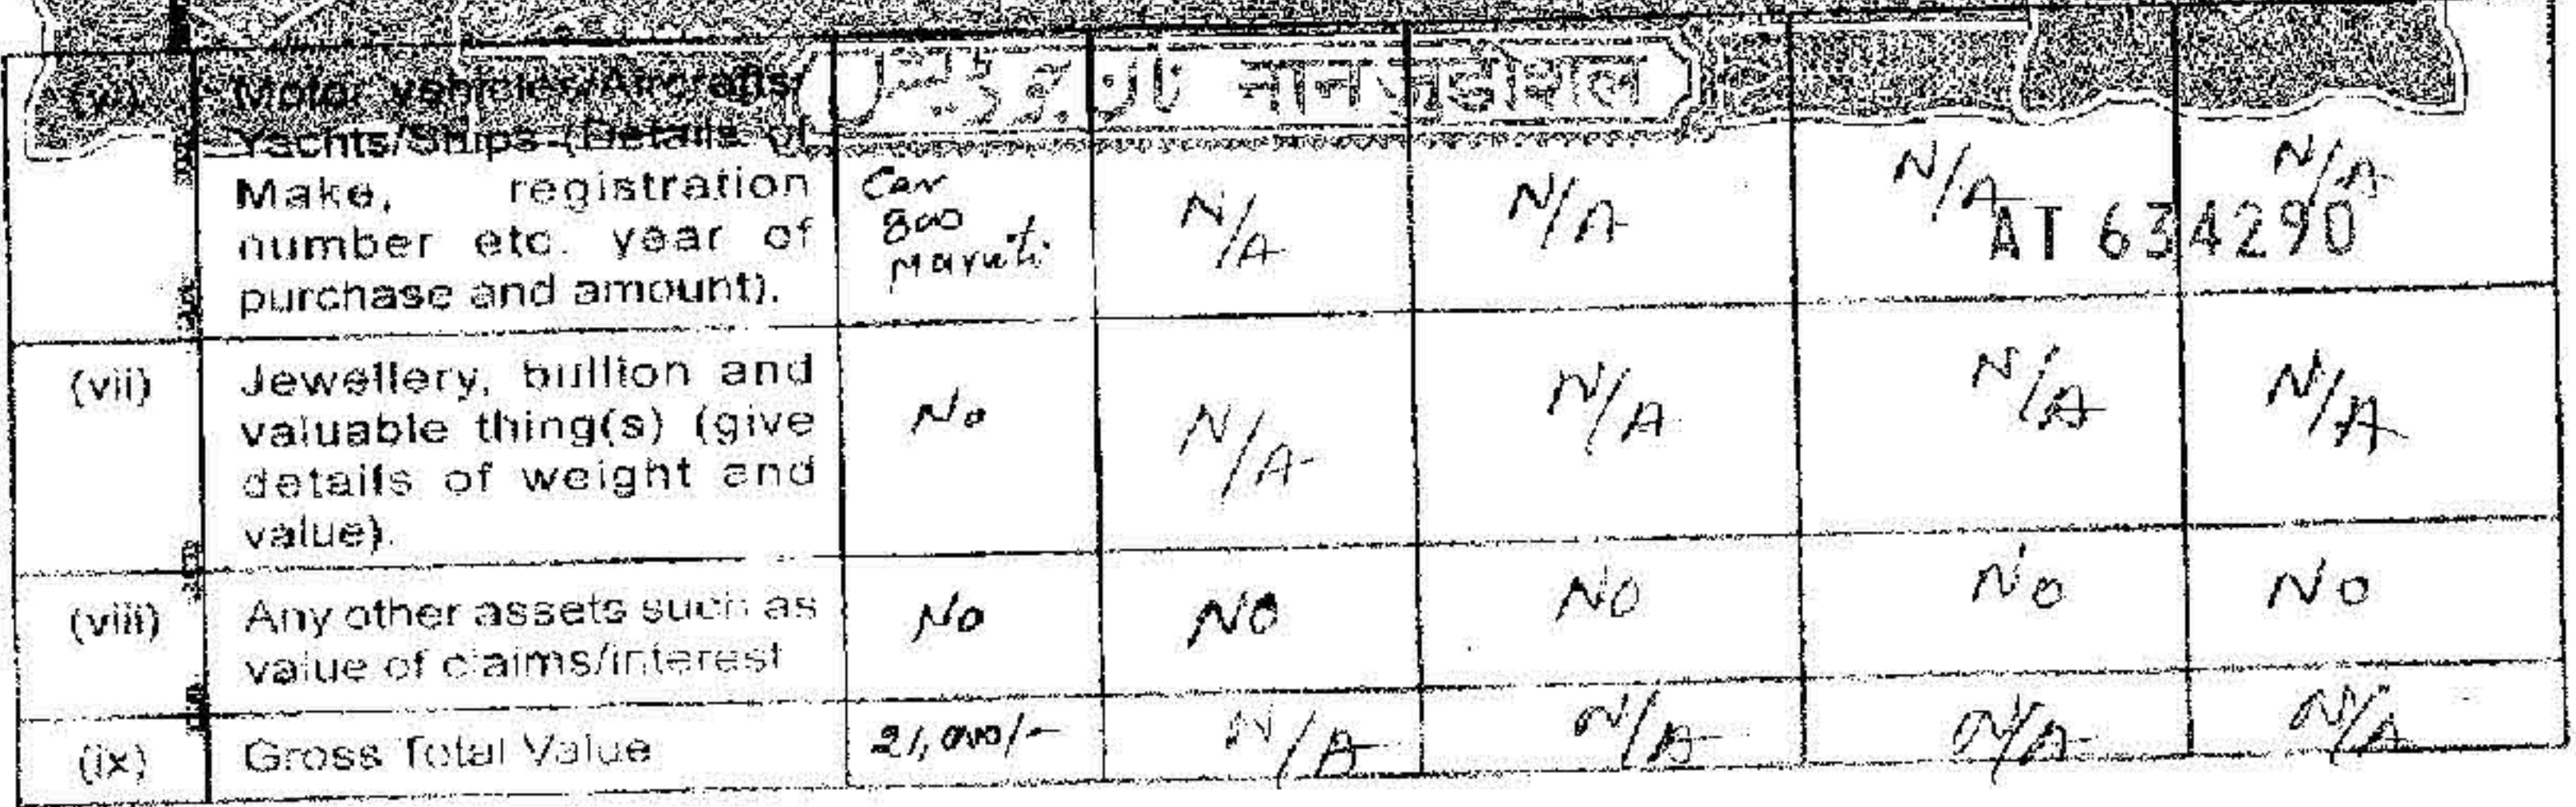 (vi) Motor vehicles/Aircrafts/
Yachts/Ships (Details of
Make, registration
number etc. year of
purchase and amount).
Car
800
Maruti
N/A
N/A
N/A
N/A
AT 634290
(vii) Jewellery, bullion and
valuable thing(s) (give
details of weight and
value).
No
N/A
N/A
N/A
N/A
(viii) Any other assets such as
value of claims/interest
No
NO
NO
No
No
(ix) Gross Total Value
21,000/-
N/A
N/A
N/A
N/A